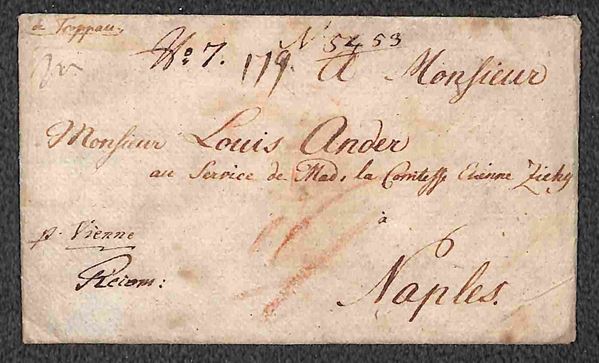 de Troppau,
No 7. 179. No 5453
A Monsieur
Monsieur Louis Ander
au Service de Mad, la Comtesse Etienne Zichy
à
p. Vienne
Recom:
Naples.